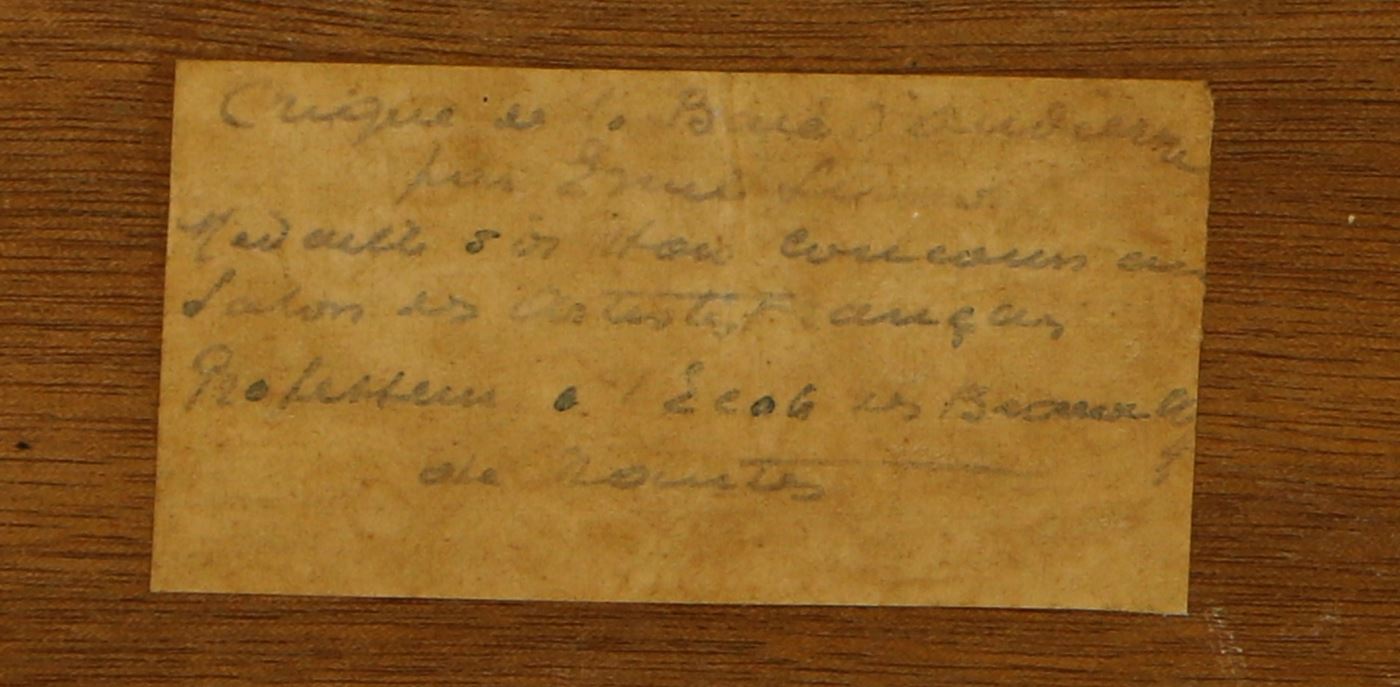 Crique de la Baie d'Audierne
par
Médaille d'or Hors Concours au
Salon des Artistes Français
Professeur à l'Ecole des Beaux
de Nantes